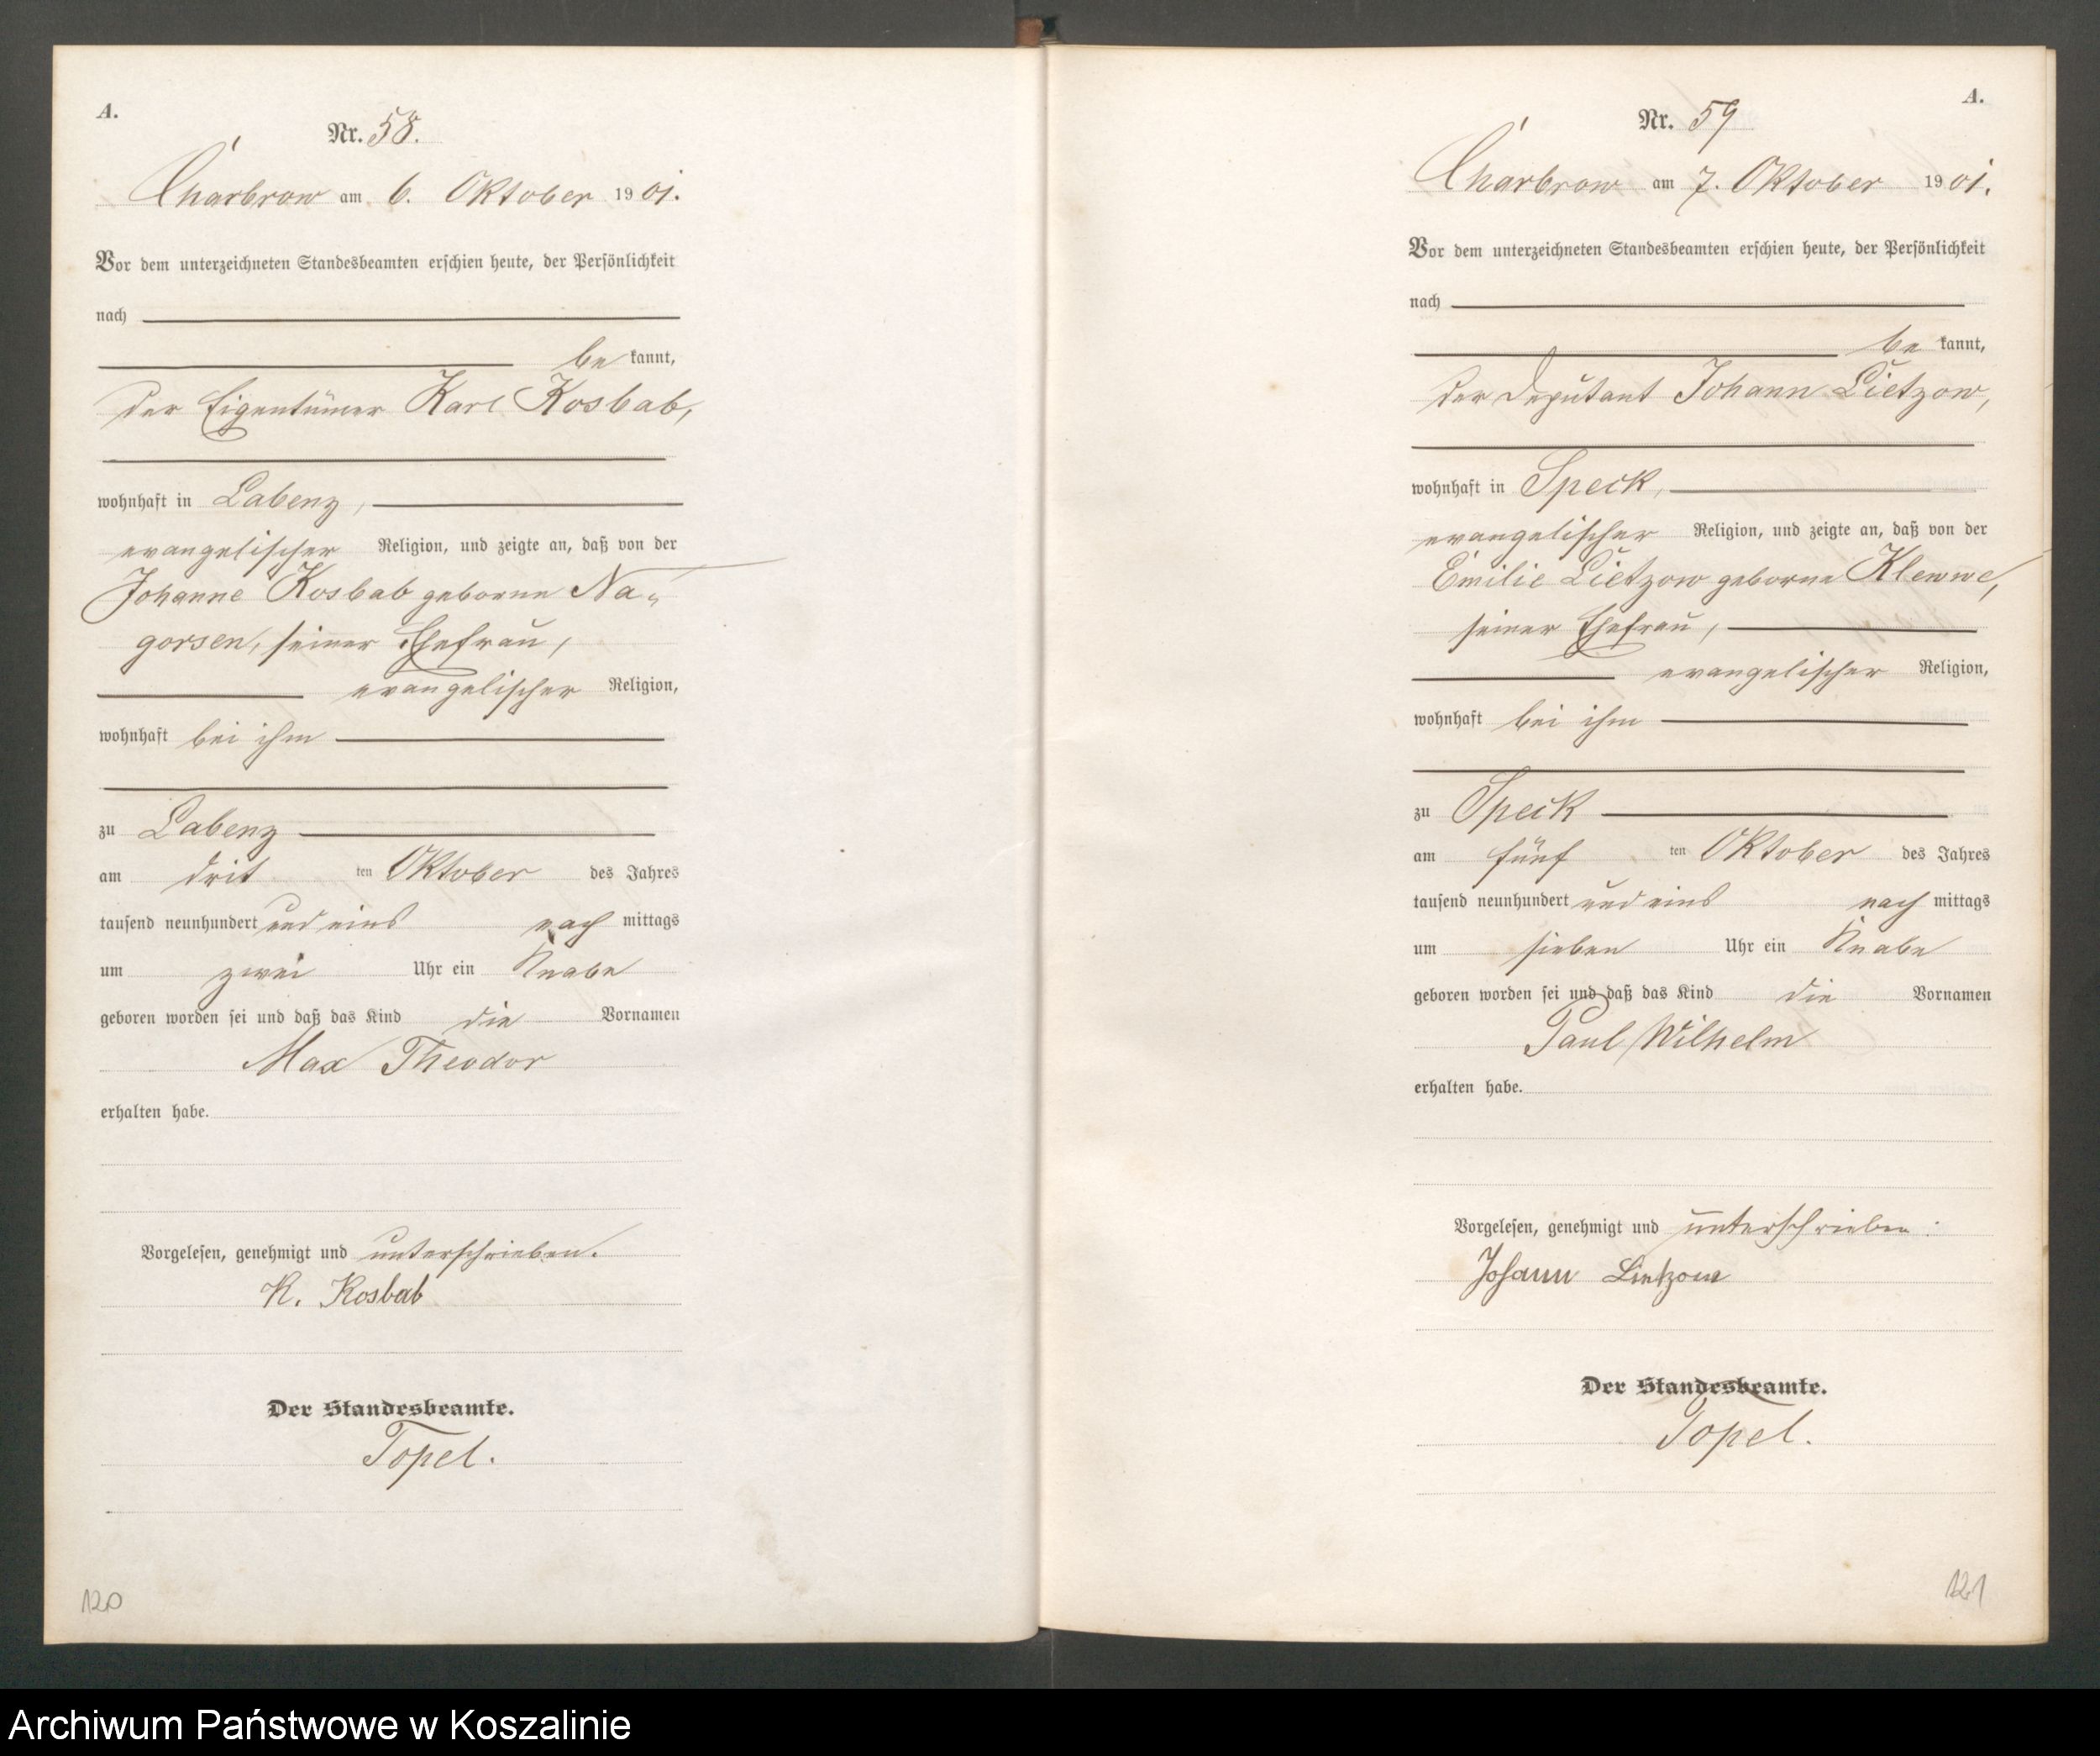 A.
Nr. 58.
Charbrow am 6. Oktober 1901.
Vor dem unterzeichneten Standesbeamten erschien heute, der Persönlichkeit
nach
be kannt,
der Eigentümer Karl Kosbab,
wohnhaft in Labenz,
evangelischer Religion, und zeigte an, daß von der
Johanne Kosbab geborne Na-
gorsen, seiner Ehefrau,
evangelischer Religion,
wohnhaft bei ihm
zu Labenz
am drit ten Oktober des Jahres
tausend neunhundert und eins nach mittags
um zwei Uhr ein Knabe
geboren worden sei und daß das Kind die Vornamen
Max Theodor
erhalten habe.
Vorgelesen, genehmigt und unterschrieben.
K. Kosbab
Der Standesbeamte.
Topel.
120
A.
Nr. 59
Charbrow am 7. Oktober 1901.
Vor dem unterzeichneten Standesbeamten erschien heute, der Persönlichkeit
nach
be kannt,
der Deputant Johann Lietzow,
wohnhaft in Speck,
evangelischer Religion, und zeigte an, daß von der
Emilie Lietzow geborne Klewwe,
seiner Ehefrau,
evangelischer Religion,
wohnhaft bei ihm
zu Speck
am fünf ten Oktober des Jahres
tausend neunhundert und eins nach mittags
um sieben Uhr ein Knabe
geboren worden sei und daß das Kind die Vornamen
Paul Wilhelm
erhalten habe.
Vorgelesen, genehmigt und unterschrieben:
Johann Lietzow
Der Standesbeamte.
Topel.
121
Archiwum Państwowe w Koszalinie